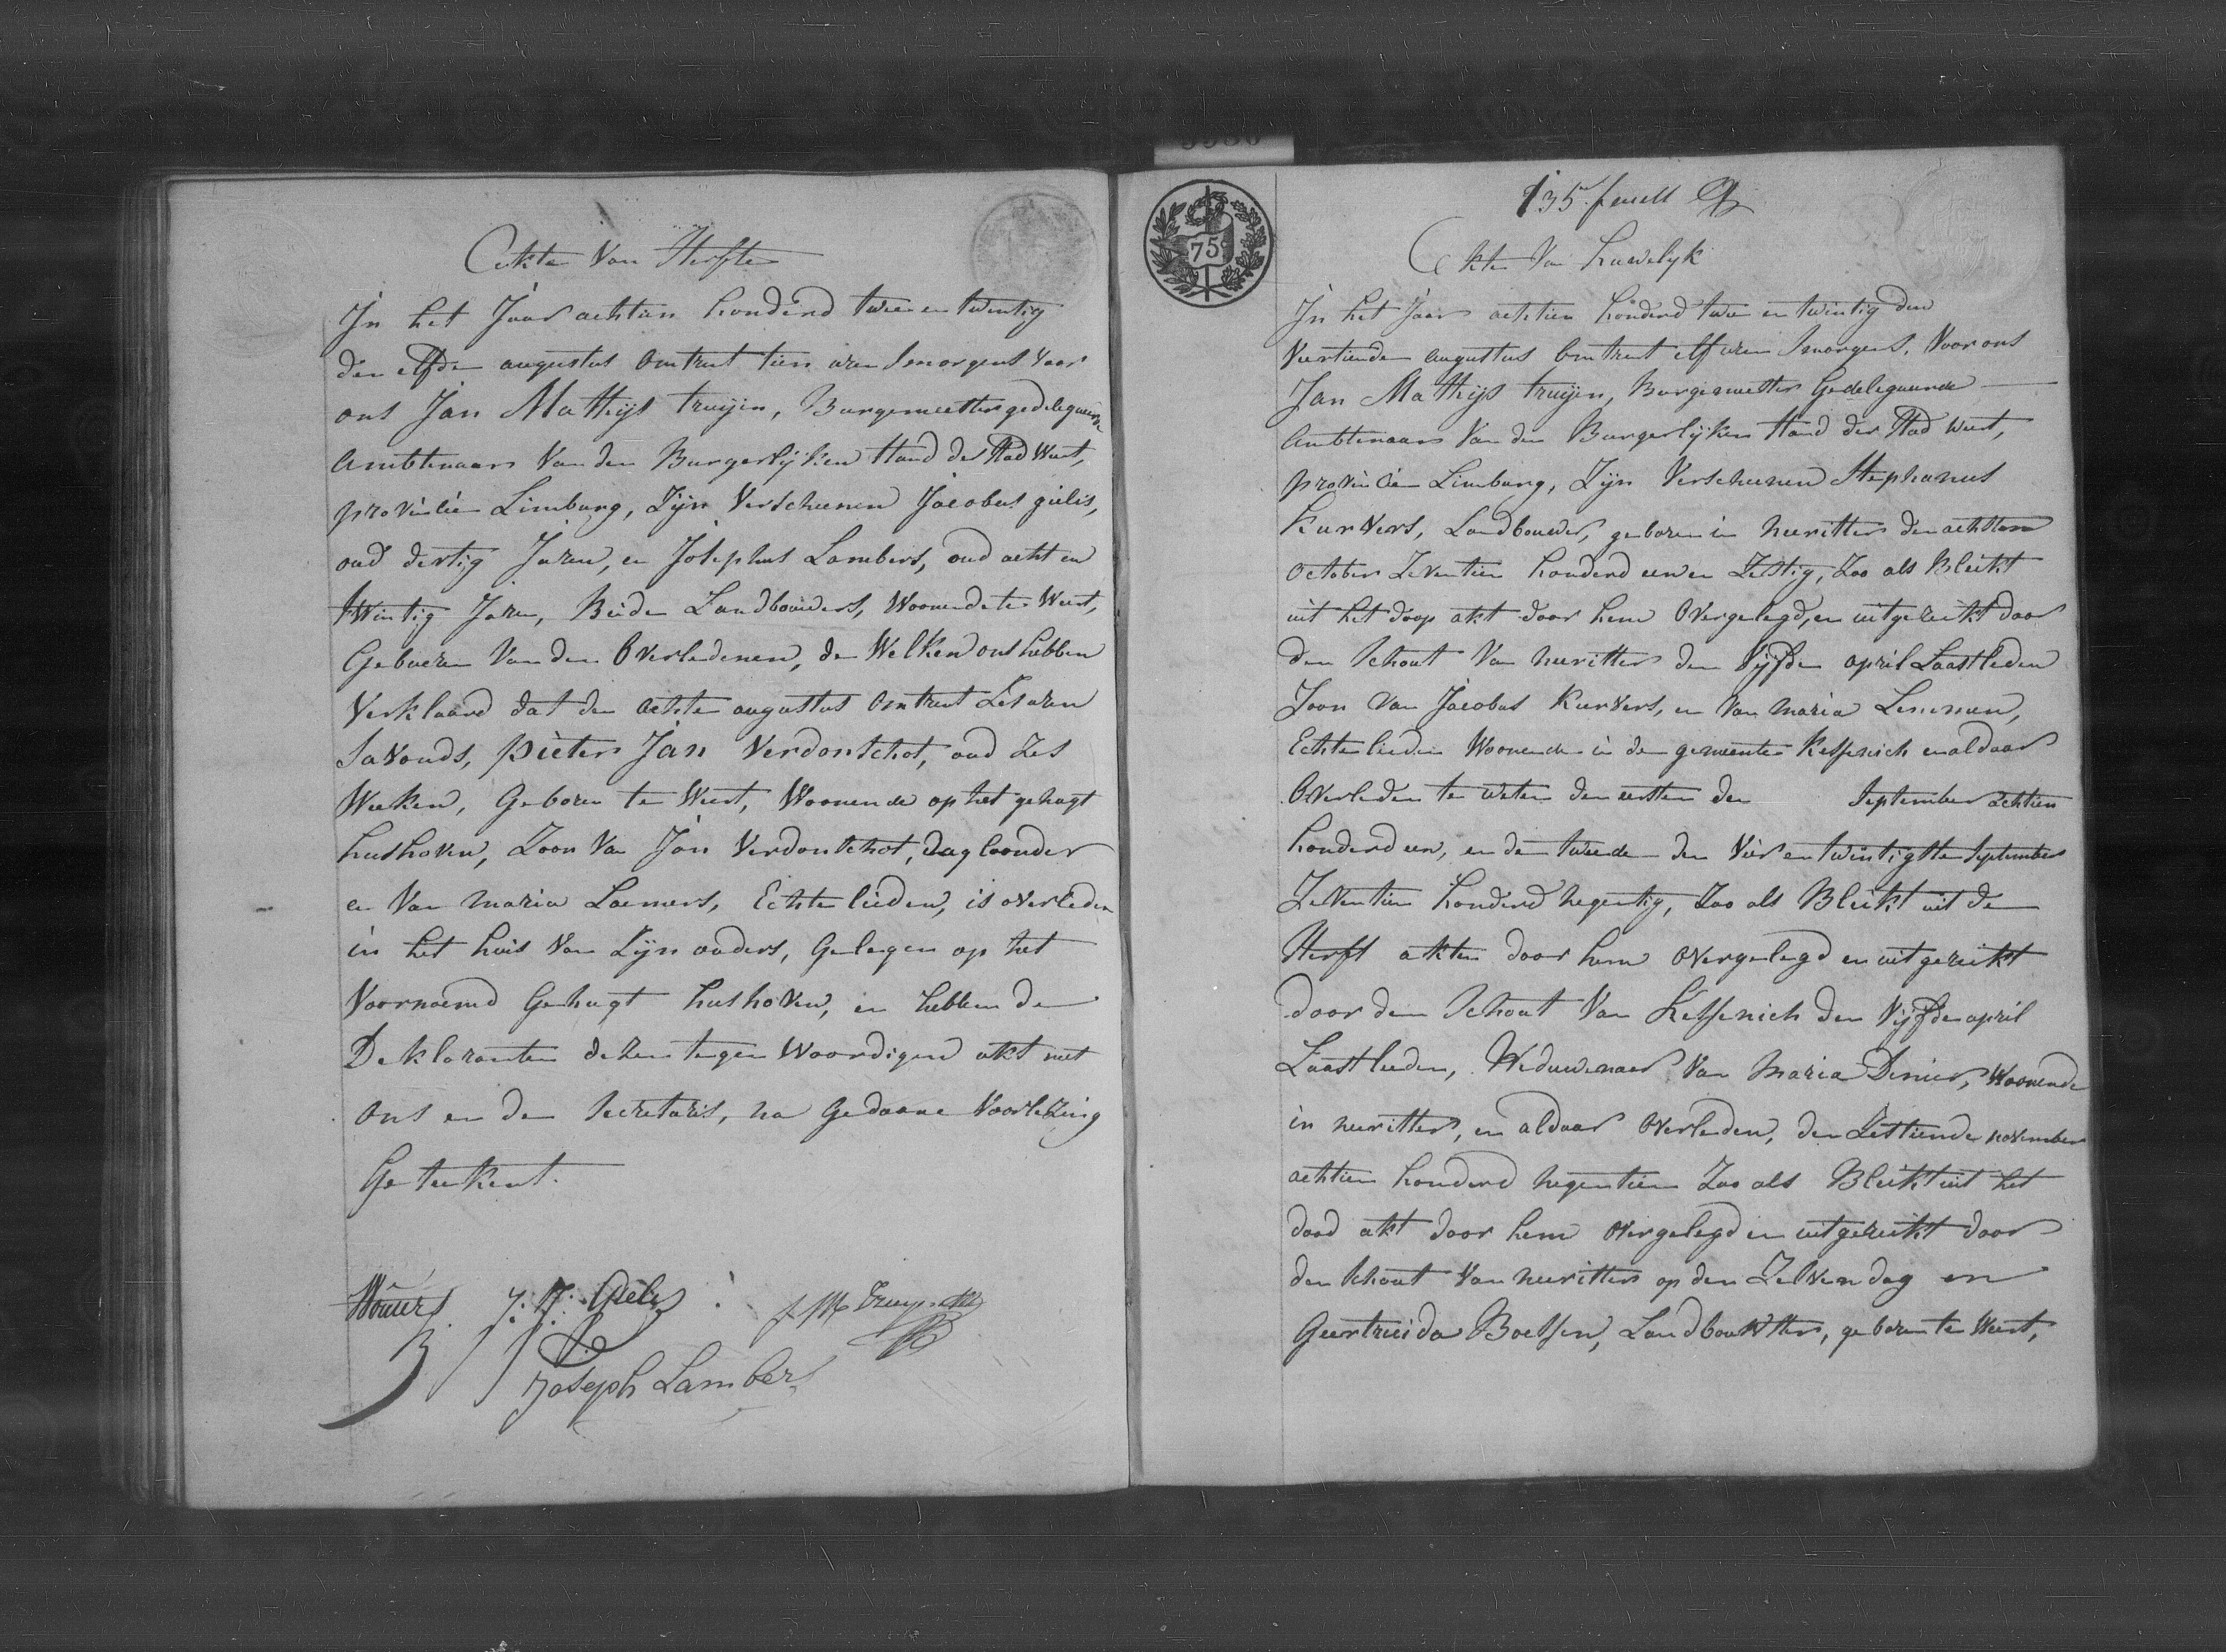 Ackte Van Sterfte
In het Jaar achtien honderd twee en twintig
den elfden augustus omtrent tien uren Smorgens voor
ons Jan Mathijs truijen, Burgemeester gedelegueerde
Ambtenaar Van den Burgerlijken stand der Stad Weert,
provincie Limburg, Zijn Verscheenen Jacobus gielis,
oud dertig Jaren, en Josephus Lambers, oud acht en
twintig Jaren, Beiden Landbouwers, Woonende te Weert,
Gebueren Van den Overledenen, de Welken ons hebben
Verklaard dat den achten augustus omtrent Zes uren
Savonds, pieter Jan Verdonschot, oud zes
Weeken, Geboren te Weert, Woonende op het gehugt
hushoven, Zoon Van Jan Verdonschot, dagloonder
en Van maria Laemers, Echtelieden, is overleden
in het huis Van Zijn ouders, Gelegen op het
Voornoemd Gehugt hushoven, en hebben de
Deklaranten dezen tegenwoordigen akt met
ons en den Secretaris, na Gedaane Voorlezing
Geteekent.
J. Gielis J M Truijen
Joseph Lambers
75
135
Ackte Van Huwelyk
In het Jaar achtien honderd twee en twintig den
Veertienden augustus omtrent elf uren Smorgens, Voor ons
Jan Mathijs truijen, Burgemeester Gedelegueerde
Ambtenaar Van den Burgerlijken stand der Stad Weert,
provincie Limburg, Zijn Verscheenen Stephanus
Kurvers, Landbouwer, geboren in neeritter den achtsten
October Zeventien honderd een en Zestig, Zoo als Bleikt
uit het doop akt door hem Overgelegd, en uitgereikt door
den Schout Van neeritter den Vijfden april Laastleden
Zoon Van Jacobus Kurvers, en Van maria Lemmen,
Echtelieden Woonende in de gemeente Kessenich en aldaar
Overleden te weten den eersten den September achtien
honderd een, en de tweede den Vier en twintigsten September
Zeventien honderd negentig, Zoo als Bleikt uit de
Sterft akten door hem overgelegd en uitgereikt
door den Schout Van Kessenich den Vijfden april
Laastleeden, Weduwenaar Van Maria Denier, Woonende
in neeritter, en aldaar overleden, den Zestienden november
achtien honderd negentien Zoo als Bleikt uit het
dood akt door hem overgelegd en uitgereikt door
den Schout Van neeritter op den Zelven dag en
Geertruida Boelsen, Landbouwster, geboren te Weert,